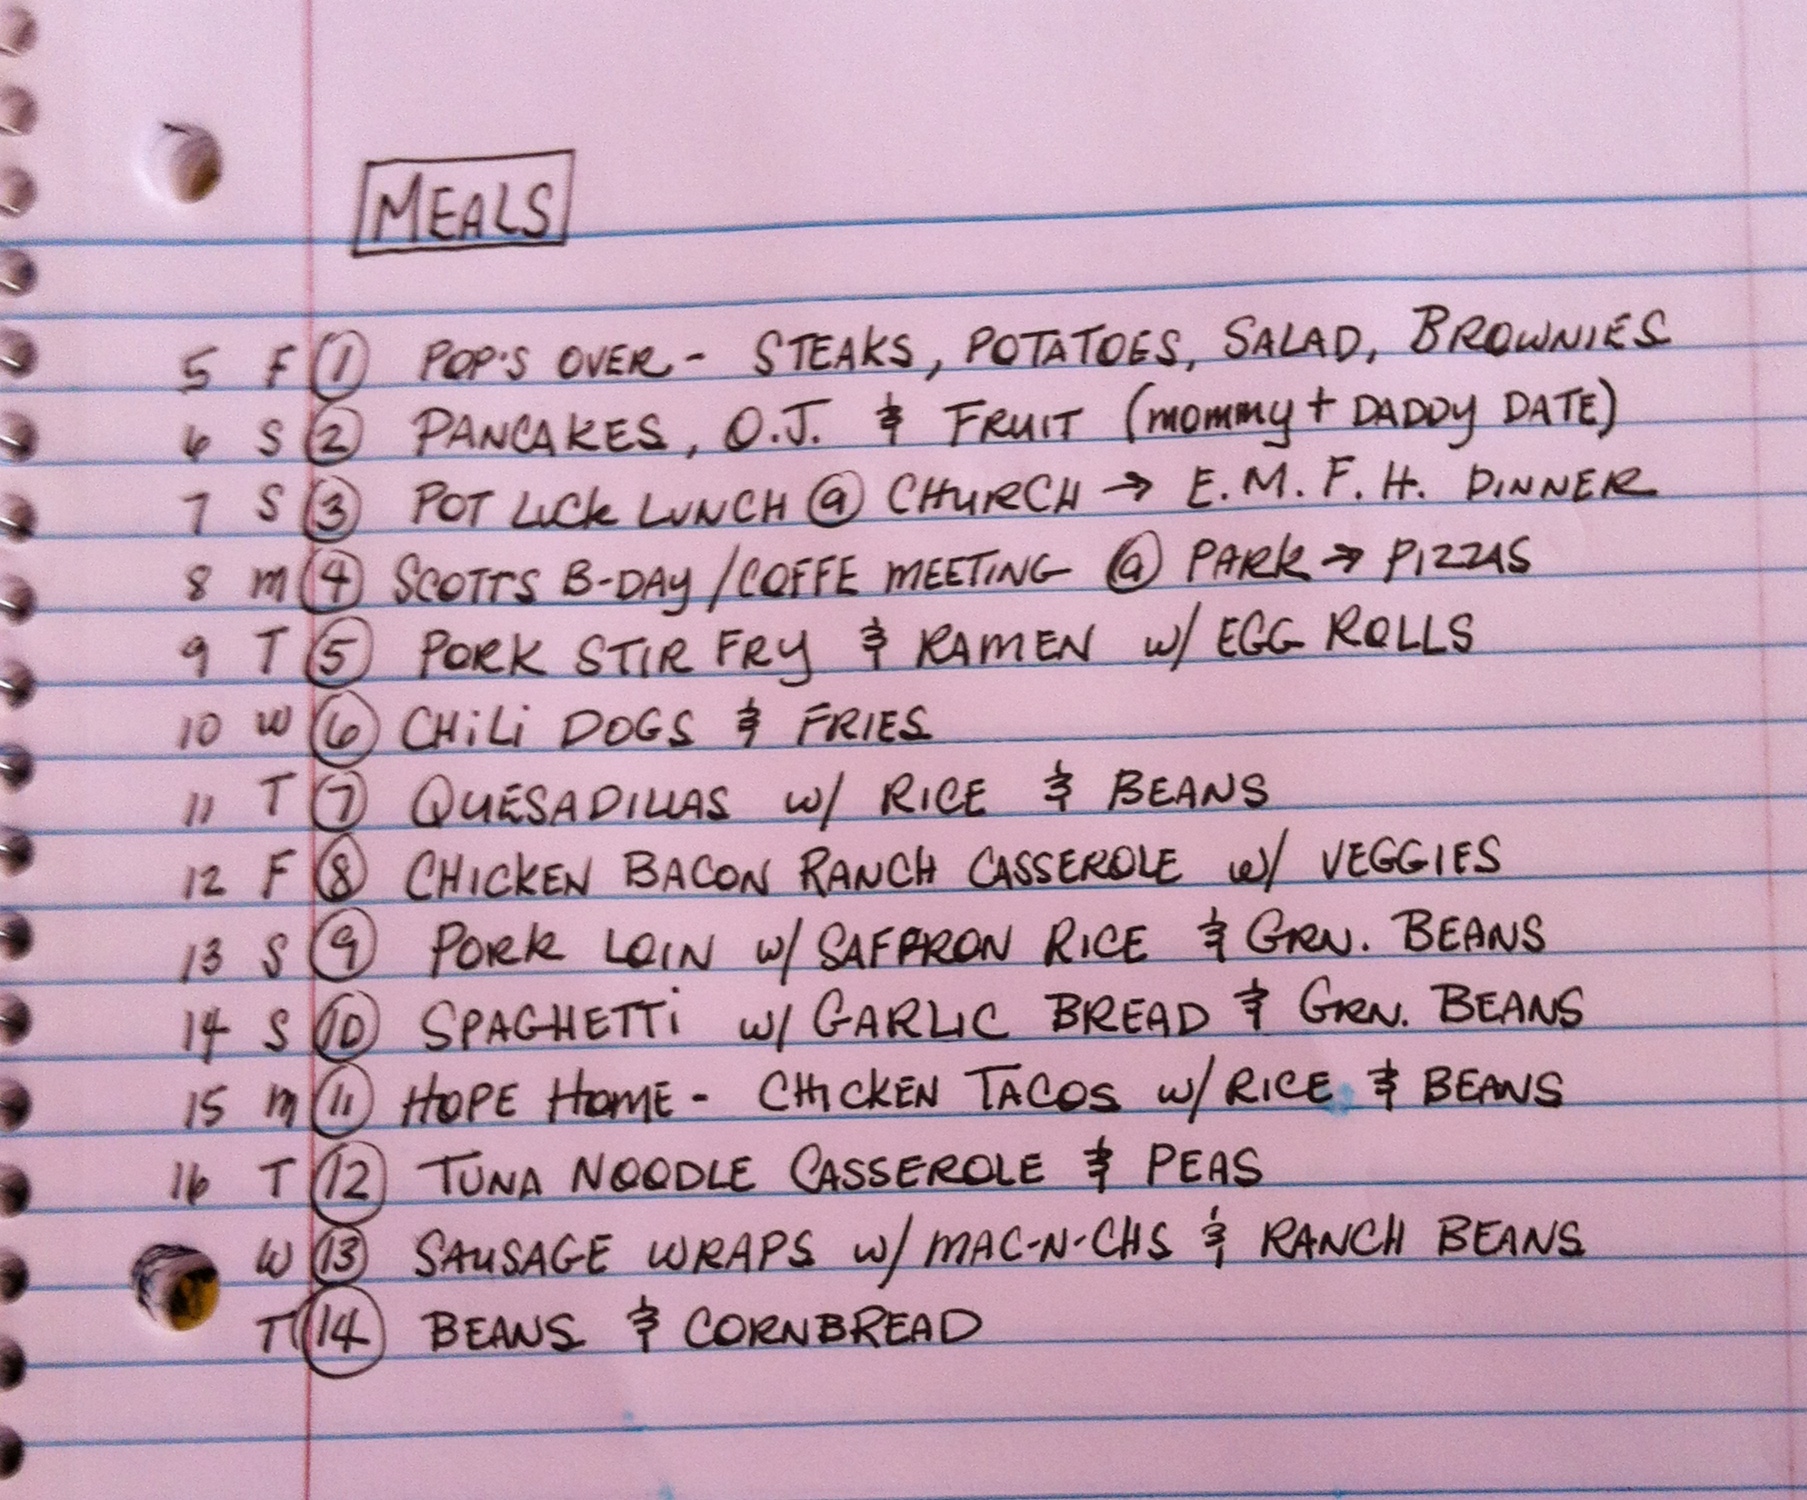 MEALS
5 F 1 POP'S OVER - STEAKS, POTATOES, SALAD, BROWNIES
6 S 2 PANCAKES, O.J. & FRUIT (mommy + DADDY DATE)
7 S 3 POT LUCK LUNCH @ CHURCH → E.M.F.H. DINNER
8 M 4 SCOTTS B-DAY / COFFE MEETING @ PARK → PIZZAS
9 T 5 PORK STIR FRY & RAMEN w/ EGG ROLLS
10 W 6 CHILI DOGS & FRIES
11 T 7 QUESADILLAS w/ RICE & BEANS
12 F 8 CHICKEN BACON RANCH CASSEROLE w/ VEGGIES
13 S 9 PORK LOIN w/ SAFFRON RICE & GRN. BEANS
14 S 10 SPAGHETTI w/ GARLIC BREAD & GRN. BEANS
15 M 11 HOPE HOME - CHICKEN TACOS w/ RICE & BEANS
16 T 12 TUNA NOODLE CASSEROLE & PEAS
W 13 SAUSAGE WRAPS w/ MAC-N-CHS & RANCH BEANS
T 14 BEANS & CORNBREAD